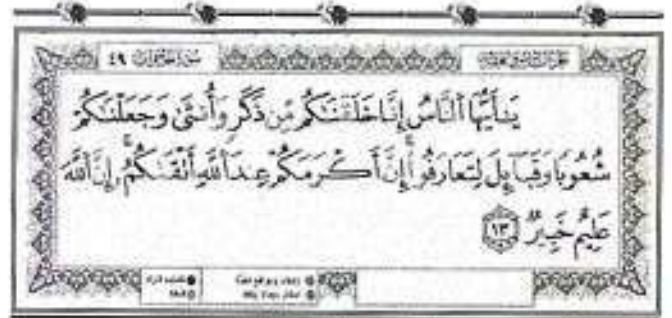 سورة الحجرات ٤٩
يَٰٓأَيُّهَا ٱلنَّاسُ إِنَّا خَلَقْنَٰكُم مِّن ذَكَرٍ وَأُنثَىٰ وَجَعَلْنَٰكُمْ
شُعُوبًا وَقَبَآئِلَ لِتَعَارَفُوٓا۟ ۚ إِنَّ أَكْرَمَكُمْ عِندَ ٱللَّهِ أَتْقَىٰكُمْ ۚ إِنَّ ٱللَّهَ
عَلِيمٌ خَبِيرٌ ١٣